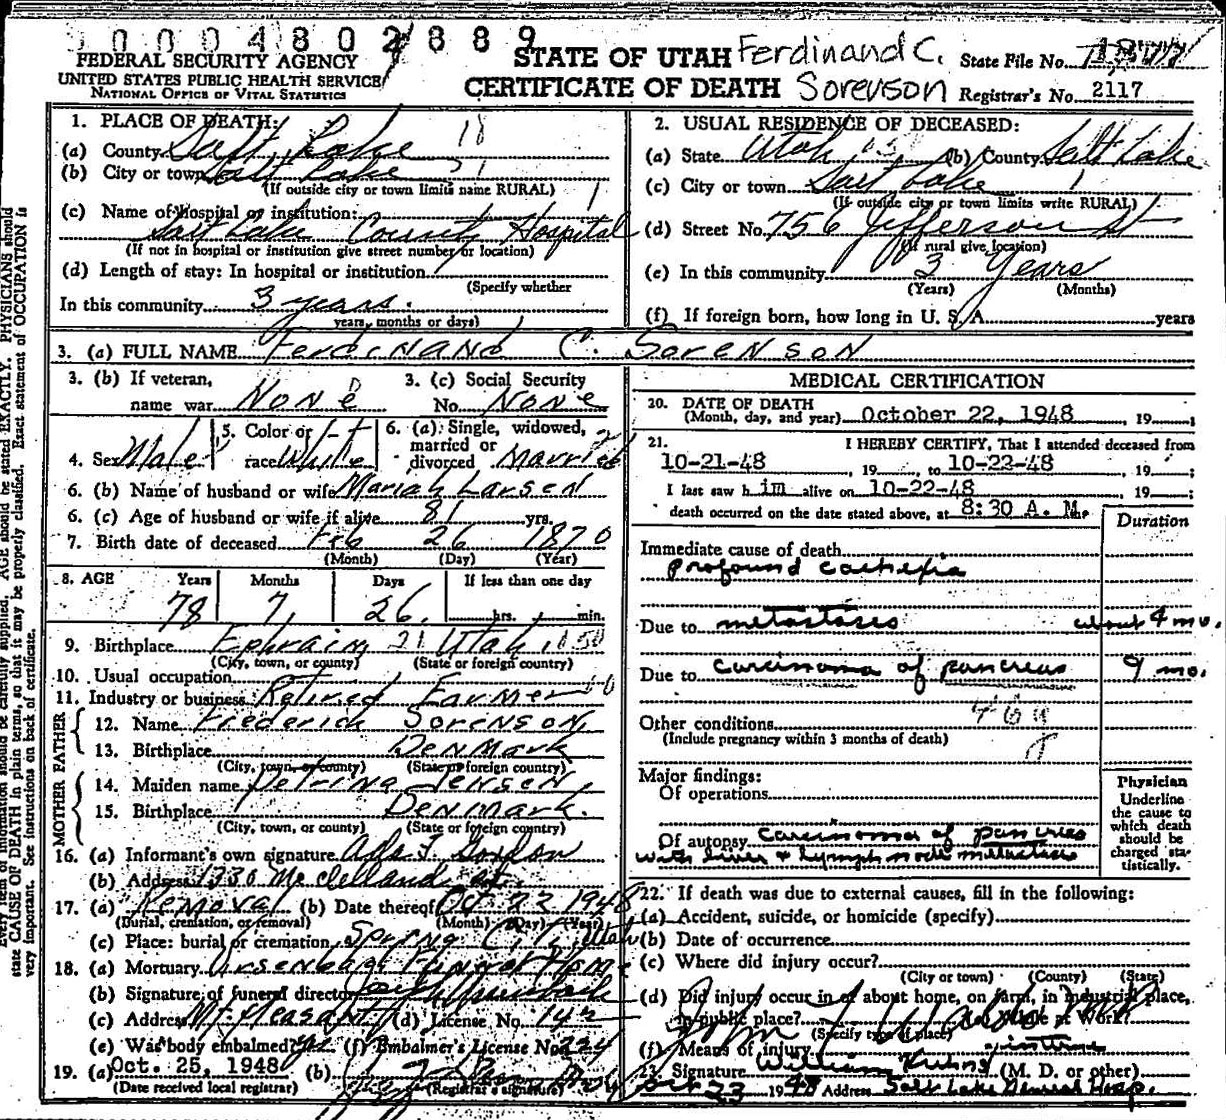 0 0 0 4 8 0 2 8 8 9
FEDERAL SECURITY AGENCY
UNITED STATES PUBLIC HEALTH SERVICE
NATIONAL OFFICE OF VITAL STATISTICS
STATE OF UTAH Ferdinand C.
CERTIFICATE OF DEATH Sorenson
State File No.
Registrar's No. 2117
1. PLACE OF DEATH:
(a) County Salt Lake 18
(b) City or town Salt Lake
(If outside city or town limits name RURAL)
(c) Name of hospital or institution:
Salt Lake County Hospital
(If not in hospital or institution give street number or location)
(d) Length of stay: In hospital or institution
(Specify whether
In this community 3 years.
years, months or days)
2. USUAL RESIDENCE OF DECEASED:
(a) State Utah (b) County Salt Lake
(c) City or town Salt Lake 1
(If outside city or town limits write RURAL)
(d) Street No. 756 Jefferson St
(If rural give location)
(e) In this community 3 Years
(Years) (Months)
(f) If foreign born, how long in U. S. A. years
3. (a) FULL NAME Ferdinand C. Sorenson
3. (b) If veteran,
name war None
3. (c) Social Security
No. None
4. Sex Male
5. Color or
race White
6. (a) Single, widowed,
married or
divorced Married
6. (b) Name of husband or wife Mariah Larsen
6. (c) Age of husband or wife if alive 81 yrs.
7. Birth date of deceased Feb 26 1870
(Month) (Day) (Year)
8. AGE Years Months Days If less than one day
78 7 26. hrs. min.
9. Birthplace Ephraim 21 Utah
(City, town, or county) (State or foreign country)
10. Usual occupation
11. Industry or business Retired Farmer
FATHER
12. Name Frederick Sorenson
13. Birthplace Denmark
(City, town, or county) (State or foreign country)
MOTHER
14. Maiden name Petrina Jensen
15. Birthplace Denmark.
(City, town, or county) (State or foreign country)
16. (a) Informant's own signature
(b) Address 1330 McClelland St.
17. (a) Removal (b) Date thereof Oct 23 1948
(Burial, cremation, or removal) (Month) (Day) (Year)
(c) Place: burial or cremation Spring City, Utah
18. (a) Mortuary Ursenbach Funeral Home
(b) Signature of funeral director
(c) Address Mt. Pleasant (d) License No. 142
(e) Was body embalmed? yes (f) Embalmer's License No. 224
19. (a) Oct. 25, 1948 (b)
(Date received local registrar) (Registrar's signature)
MEDICAL CERTIFICATION
20. DATE OF DEATH
(Month, day, and year) October 22, 1948 19
21. I HEREBY CERTIFY, That I attended deceased from
10-21-48, 19, to 10-22-48, 19;
I last saw h im alive on 10-22-48, 19;
death occurred on the date stated above, at 8:30 A. M.
Duration
Immediate cause of death
profound cachexia
Due to metastases about 4 mo.
Due to carcinoma of pancreas 9 mo.
Other conditions
(Include pregnancy within 3 months of death)
Major findings:
Of operations
Of autopsy carcinoma of pancreas
with liver + lymph node metastases
Physician
Underline
the cause to
which death
should be
charged sta-
tistically.
22. If death was due to external causes, fill in the following:
(a) Accident, suicide, or homicide (specify)
(b) Date of occurrence
(c) Where did injury occur?
(City or town) (County) (State)
(d) Did injury occur in or about home, on farm, in industrial place,
in public place? While at Work?
(Specify type of place)
(f) Means of injury
23. Signature William Kuhns (M. D. or other)
Oct 23 1948 Address Salt Lake General Hosp.
Every item of information should be carefully supplied. AGE should be stated EXACTLY. PHYSICIANS should
state CAUSE OF DEATH in plain terms, so that it may be properly classified. Exact statement of OCCUPATION is
very important. See instructions on back of certificate.